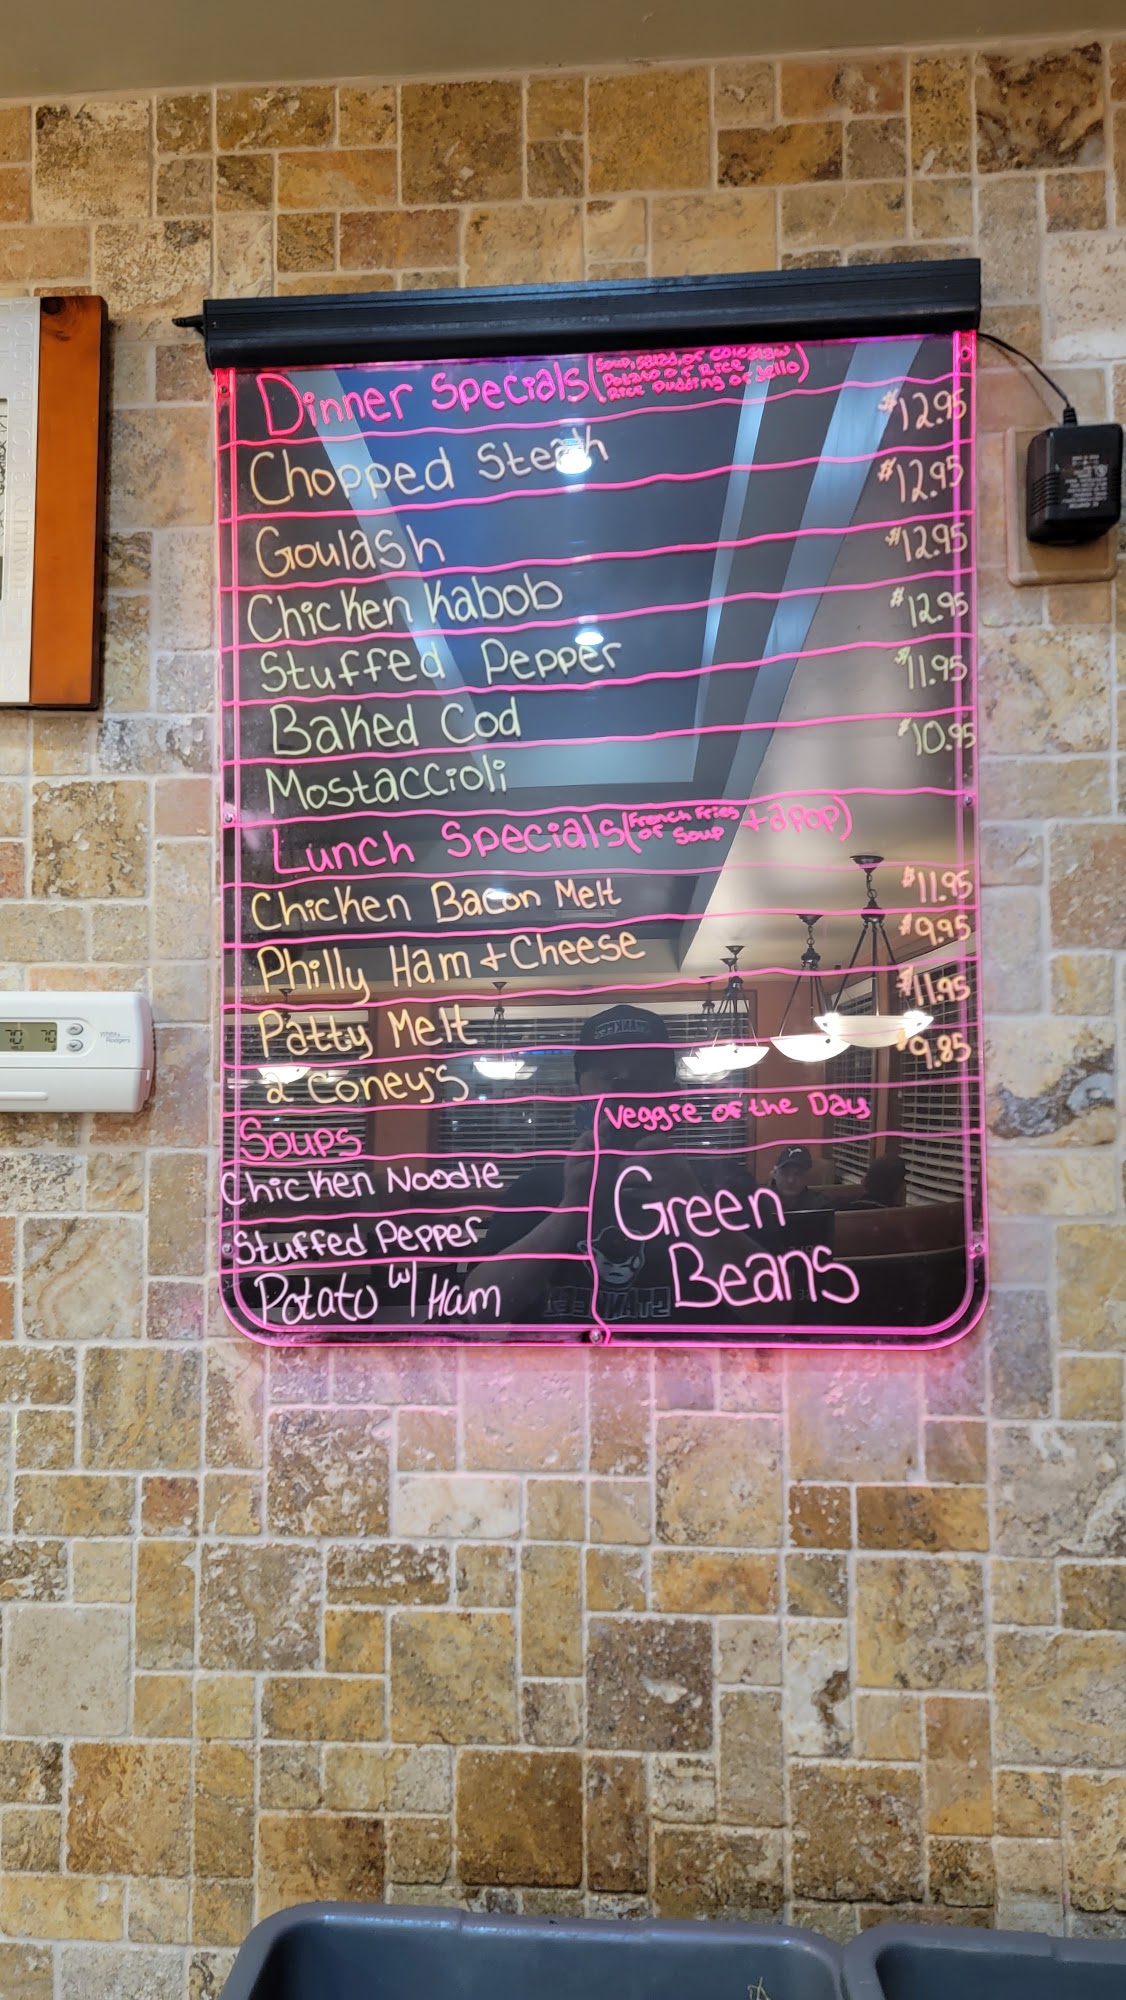 Dinner Specials (Soup, Salad, or Coleslaw
Potato or Rice
Rice Pudding or Jello)
Chopped Steak $12.95
Goulash $12.95
Chicken Kabob $12.95
Stuffed Pepper $12.95
Baked Cod $11.95
Mostaccioli $10.95
Lunch Specials (French Fries
or Soup + a pop)
Chicken Bacon Melt $11.95
Philly Ham + Cheese $9.95
Patty Melt $11.95
2 Coney's $9.85
Soups
Chicken Noodle
Stuffed Pepper
Potato w/ Ham
Veggie of the Day
Green
Beans
70 70
White
Rodgers